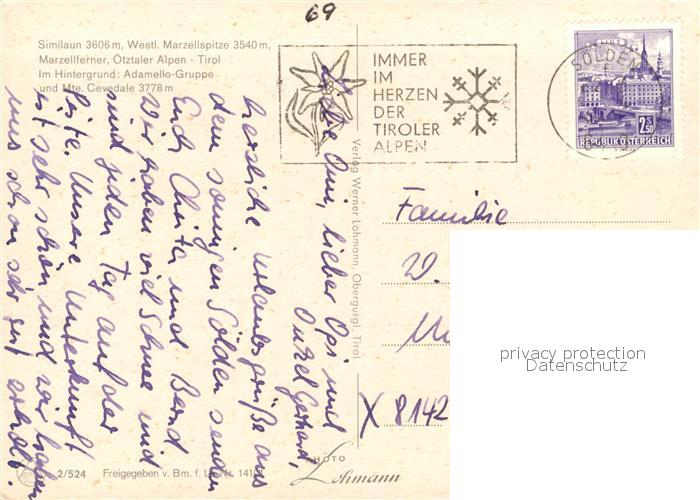 69
Similaun 3606 m, Westl. Marzellspitze 3540 m,
Marzellferner, Ötztaler Alpen - Tirol
Im Hintergrund: Adamello-Gruppe
und Mte. Cevedale 3778 m
IMMER
IM
HERZEN
DER
TIROLER
ALPEN
SÖLDEN
2.50
REPUBLIK ÖSTERREICH
Liebe Omi, lieber Opi und
Onkel Gerhard,
herzliche Urlaubsgrüße aus
dem sonnigen Sölden senden
Euch Christa und Bernd
Wir haben viel Schnee und
sind jeden Tag auf der
Piste. Unsere Unterkunft
ist sehr schön und wir haben
uns schon sehr gut erholt.
Verlag Werner Lohmann, Obergurgl, Tirol
Familie
W.
X 8142
privacy protection
Datenschutz
2/524 Freigegeben v. Bm. f. L.
PHOTO
Lohmann